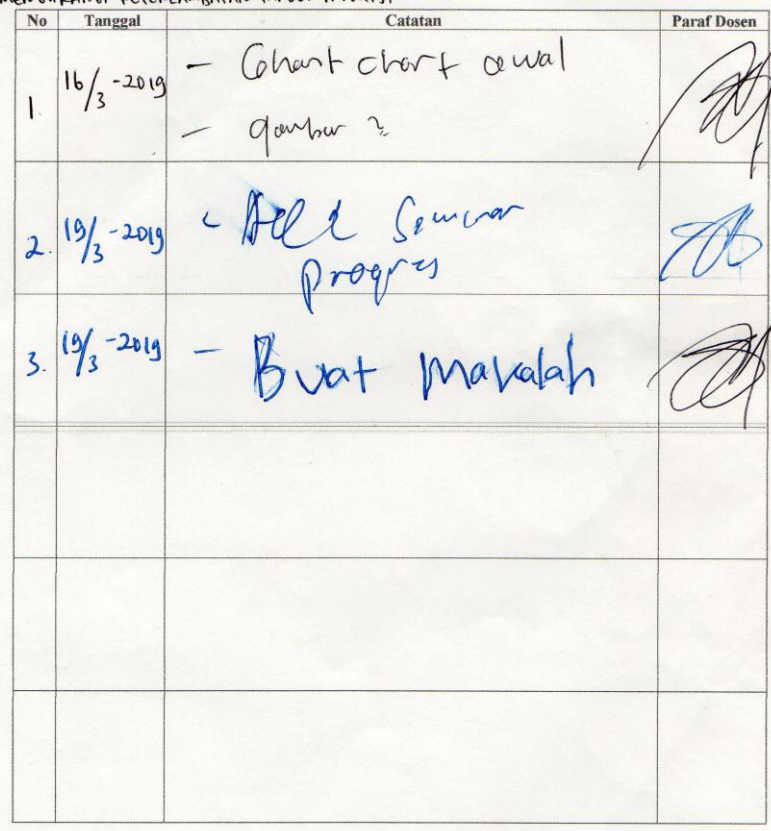 No Tanggal Catatan Paraf Dosen
1. 16/3-2019 - Ghant chart awal
- gambar 2
2. 19/3-2019 - Seminar
progres
3. 19/3-2019 - Buat Makalah